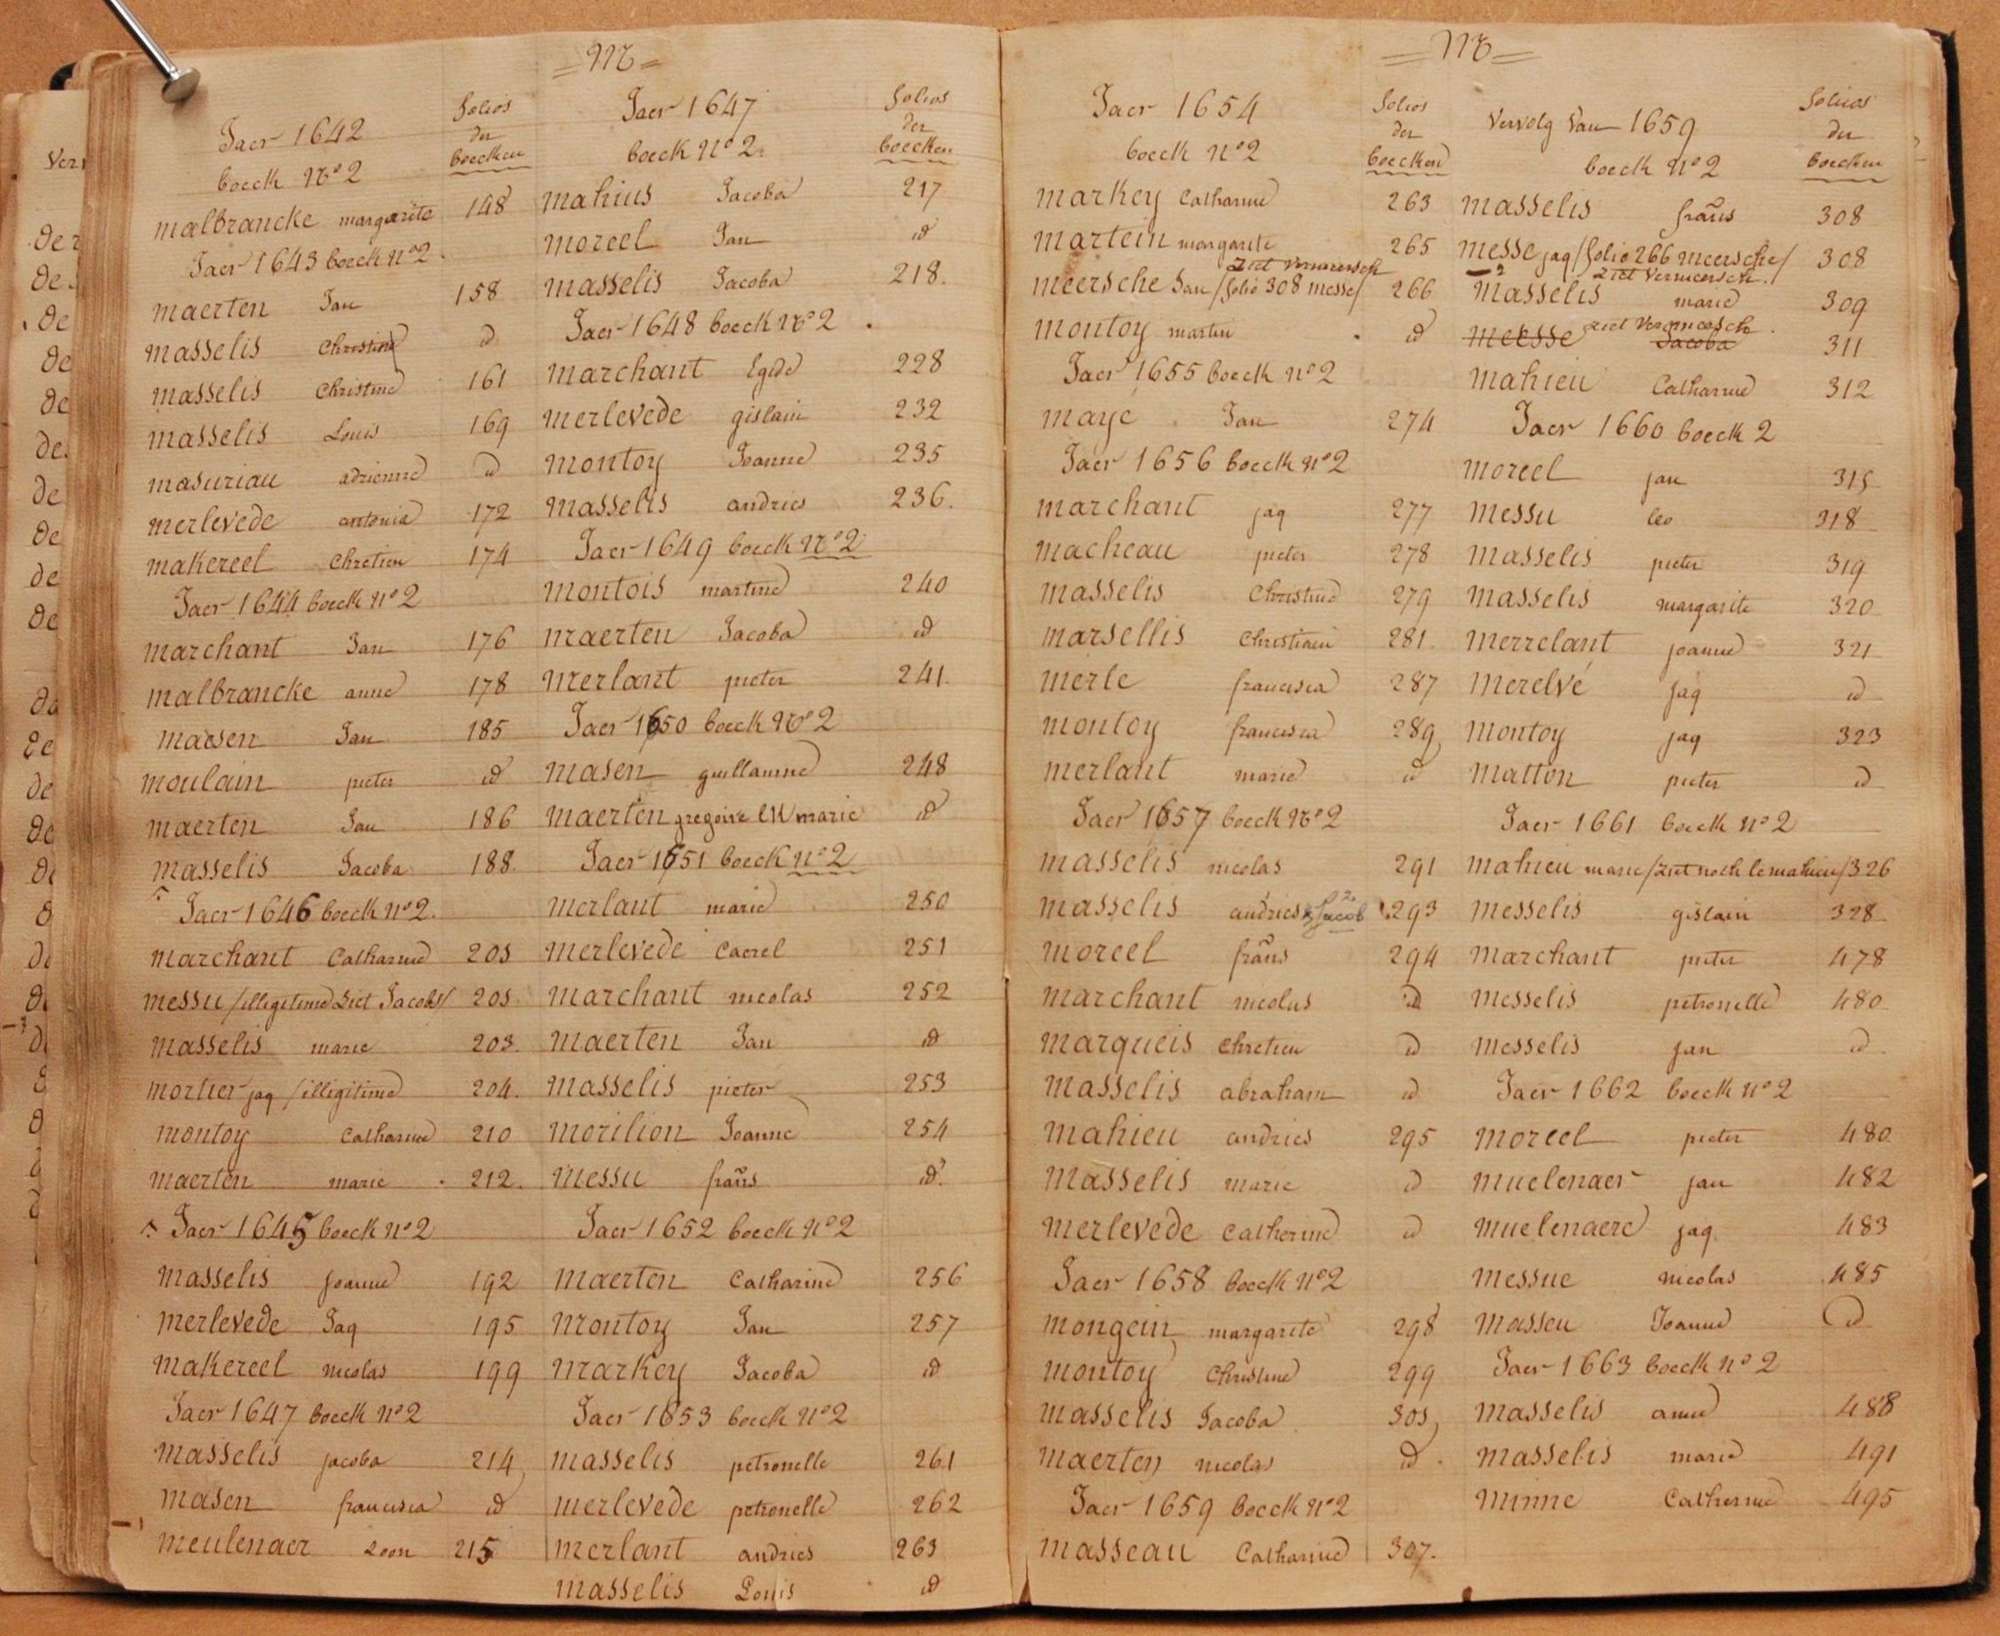 = M =
Jaer 1642
boeck N° 2
folios
der
boecken
malbrancke margarite 148
Jaer 1643 boeck N° 2.
maerten Jan 158
masselis Christine id
masselis Christine 161
masselis Louis 169
masuriau adrienne id
merlevede antonia 172
makereel Chretien 174
Jaer 1644 boeck N° 2
marchant Jan 176
malbrancke anne 178
maesen Jan 185
moulain pieter id
maerten Jan 186
masselis Jacoba 188.
Jaer 1646 boeck N° 2.
marchant Catharine 203
messu /illegitime Ziet Jacobs/ 203.
masselis marie 203.
mortier jaq /illigitime 204.
montoy Catharine 210
maerten marie 212.
Jaer 1645 boeck N° 2
masselis Joanne 192
merlevede Jaq 195
makereel nicolas 199
Jaer 1647 boeck N° 2
masselis jacoba 214
masen francisca id
meulenaer Leon 215
Jaer 1647
boeck N° 2.
folios
der
boecken
mahius Jacoba 217
moreel Jan id
masselis Jacoba 218.
Jaer 1648 boeck N° 2.
marchant Egide 228
merlevede gislain 232
montoy Joanne 235
masselis andries 236.
Jaer 1649 boeck N° 2
montois martine 240
maerten Jacoba id
merlant pieter 241.
Jaer 1650 boeck N° 2
masen guillaume 248
maerten gregoire en marie id
Jaer 1651 boeck N° 2
merlant marie 250
merlevede Caerel 251
marchant nicolas 252
maerten Jan id
masselis pieter 253
morilion Joanne 254
messu frañs id.
Jaer 1652 boeck N° 2
maerten Catharine 256
montoy Jan 257
markey Jacoba id
Jaer 1653 boeck N° 2
masselis petronelle 261
merlevede petronelle 262
merlant andries 263
masselis Louis id
= M =
Jaer 1654
boeck N° 2
folios
der
boecken
markey Catharine 263
martein margarite 265
ziet Vermeersch
meersche Jan /folio 308 messe/ 266
montoy martin id
Jaer 1655 boeck N° 2
mayé Jan 274
Jaer 1656 boeck N° 2
marchant jaq 277
macheau pieter 278
masselis Christine 279
marsellis Christiain 281.
merle francisca 287
montoy francisca 289
merlant marie id
Jaer 1657 boeck N° 2
masselis nicolas 291
masselis andries & Jacob 2. 293
moreel frañs 294
marchant nicolas id
marqueis Chretien id
masselis abraham id
mahieu andries 295
masselis marie id
merlevede Catherine id
Jaer 1658 boeck N° 2
mongein margarite 298
montoy Christine 299
masselis Jacoba 303
maerten nicolas id.
Jaer 1659 boeck N° 2
masseau Catharine 307.
Vervolg Van 1659
boeck N° 2
folios
der
boecken
masselis frañs 308
messe jaq /folio 266 meersche/ 308
ziet Vermeersch.
masselis marie 309
meesse ziet Vermeersch Jacoba 311
mahieu Catharine 312
Jaer 1660 boeck 2
moreel jan 315
messu leo 318
masselis pieter 319
masselis margarite 320
merrelant joanne 321
merelvé jaq id
montoy jaq 323
matton pieter id
Jaer 1661 boeck N° 2
mahieu marie /ziet noch lemahieu/ 326
messelis gislain 328
marchant pieter 478
messelis petronelle 480
messelis jan id.
Jaer 1662 boeck N° 2
moreel pieter 480
muelenaer jan 482
muelenaere jaq. 483
messue nicolas 485
masseu Joanne id
Jaer 1663 boeck N° 2
masselis anne 488
masselis marie 491
minne Catherine 495